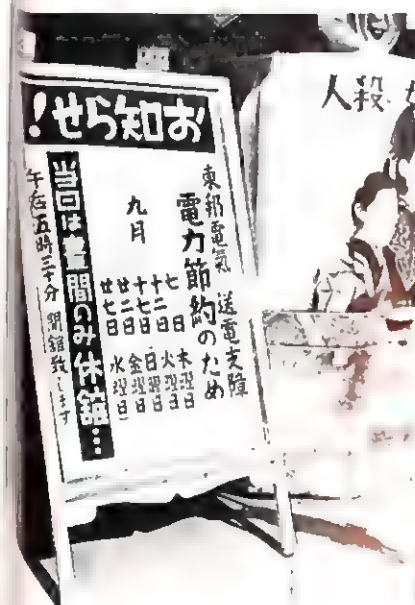 お知らせ!
東邦電氣 送電支障
電力節約のため
九月
七日 木曜日
十二日 火曜日
十七日 日曜日
廿二日 金曜日
廿七日 水曜日
当日は晝間のみ休館…
午后五時三十分 開館致します
殺人